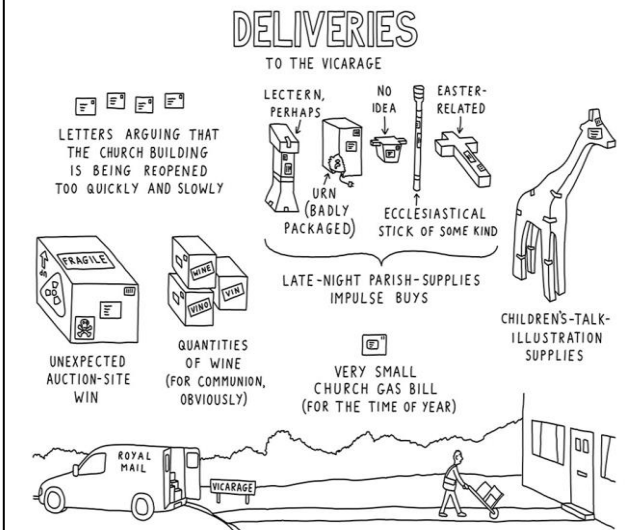 DELIVERIES
TO THE VICARAGE
LETTERS ARGUING THAT
THE CHURCH BUILDING
IS BEING REOPENED
TOO QUICKLY AND SLOWLY
LECTERN,
PERHAPS
URN
(BADLY
PACKAGED)
NO
IDEA
ECCLESIASTICAL
STICK OF SOME KIND
EASTER-
RELATED
LATE-NIGHT PARISH-SUPPLIES
IMPULSE BUYS
CHILDREN'S-TALK-
ILLUSTRATION
SUPPLIES
FRAGILE
UNEXPECTED
AUCTION-SITE
WIN
WINE
VINO
VIN
QUANTITIES
OF WINE
(FOR COMMUNION,
OBVIOUSLY)
VERY SMALL
CHURCH GAS BILL
(FOR THE TIME OF YEAR)
ROYAL
MAIL
VICARAGE